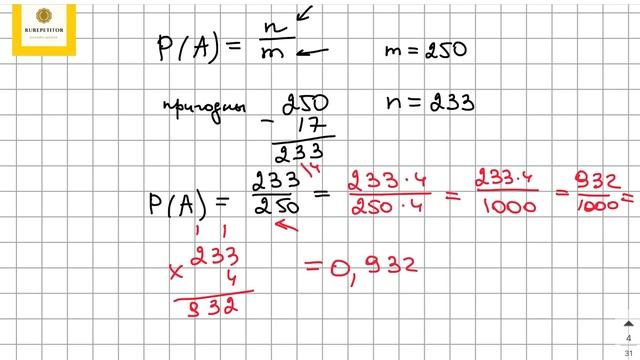 RUREPETITOR
ОНЛАЙН-ШКОЛА
P(A) = n/m
m = 250
пригодны
250
- 17
233
n = 233
P(A) = 233/250 = 233·4/250·4 = 233·4/1000 = 932/1000 =
|4
1 1
233
× 4
932
= 0,932
4
31